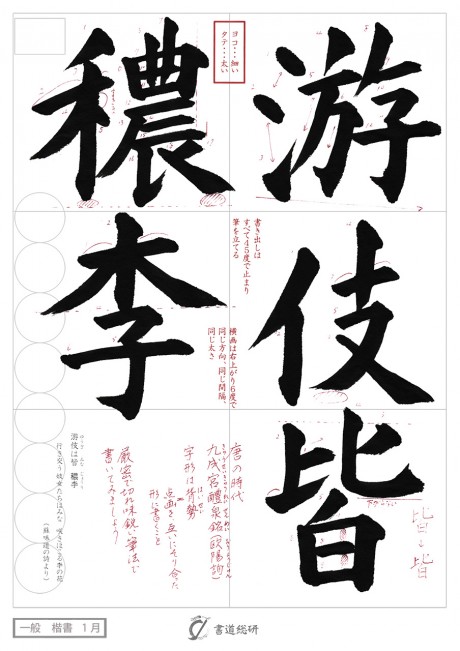 游伎皆
穠李
ヨコ・・・細い
タテ・・・太い
書き出しは
すべて45度で止まり
筆を立てる
横画は右上がり6度で
同じ方向、同じ間隔、
同じ太さ
唐の時代
九成宮醴泉銘(欧陽詢)
字形は背勢
点画を互いにそり合った
形に書くこと
厳密で切れ味鋭い筆法で
書いてみましょう
皆→皆
游伎は皆 穠李
行き交う妓女たちはみな 咲きほこる李の花
(蘇味道の詩より)
一般 楷書 1月
書道総研